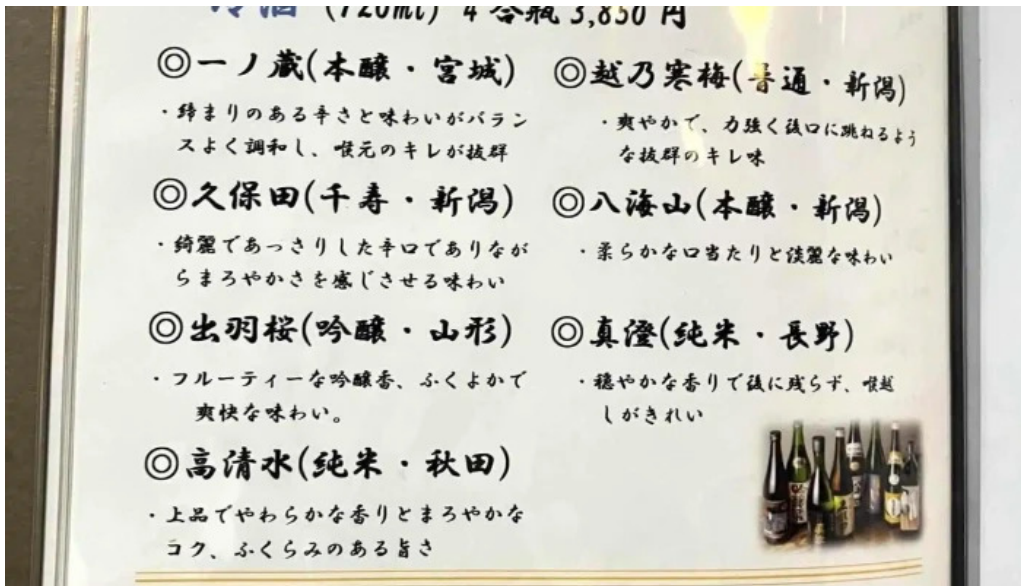 冷酒 (720ml) 4合瓶 3,850円
◎一ノ蔵(本醸・宮城)
・締まりのある辛さと味わいがバラン
スよく調和し、喉元のキレが抜群
◎久保田(千寿・新潟)
・綺麗であっさりした辛口でありなが
らまろやかさを感じさせる味わい
◎出羽桜(吟醸・山形)
・フルーティーな吟醸香、ふくよかで
爽快な味わい。
◎高清水(純米・秋田)
・上品でやわらかな香りとまろやかな
コク、ふくらみのある旨さ
◎越乃寒梅(普通・新潟)
・爽やかで、力強く後口に跳ねるよう
な抜群のキレ味
◎八海山(本醸・新潟)
・柔らかな口当たりと淡麗な味わい
◎真澄(純米・長野)
・穏やかな香りで後に残らず、喉越
しがきれい